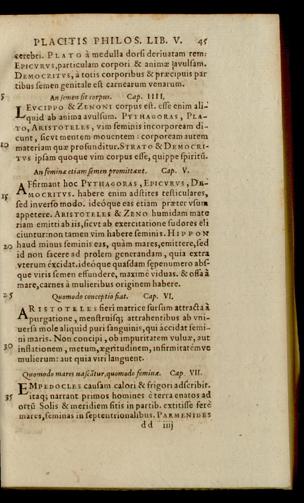 PLACITIS PHILOS. LIB. V. 45
cerebri. PLATO à medulla dorsi deriuatam rem:
EPICVRVS, particulam corpori & animæ auulsam.
DEMOCRITVS, à totis corporibus & præcipuis par
tibus semen genitale est carnearum venarum.
5 An semen sit corpus. Cap. IIII.
LEVCIPPO & ZENONI corpus est. esse enim ali-
quid ab anima auulsum. PYTHAGORAS, PLA-
TO, ARISTOTELES, vim seminis incorpoream di-
cunt, sicut mentem mouentem: corpoream autem
10 materiam quæ profunditur. STRATO & DEMOCRI-
TVS ipsam quoque vim corpus esse, quippe spiritū.
An feminæ etiam semen promittant. Cap. V.
AFfirmant hoc PYTHAGORAS, EPICVRVS, DE-
MOCRITVS. habere enim adsitites testiculares,
15 sed inuerso modo. ideóque eas etiam præter vsum
appetere. ARISTOTELES & ZENO humidam mate
riam emitti ab iis, sicut ab exercitatione sudores eli
ciuntur: non tamen vim habere seminis. HIPPON
haud minus feminis eas, quàm mares, emittere, sed
20 id non facere ad prolem generandam, quia extra
vterum excidat. ideóque quasdam sepenumero abs-
que viris semen effundere, maximè viduas. & ossa à
mare, carnes à mulieribus originem habere.
25 Quomodo conceptio fiat. Cap. VI.
ARISTOTELES fieri matrice sursum attracta à
purgatione, menstruísq; attrahentibus ab vni-
uersa mole aliquid puri sanguinis, qui accidat semi-
ni maris. Non concipi, ob impuritatem vuluæ, aut
30 inflationem, metum, ægritudinem, infirmitatémve
mulierum: aut quia viri languent.
Quomodo mares nascātur, quomodo feminæ. Cap. VII.
EMPEDOCLES causam calori & frigori adscribit.
itaq; narrant primos homines è terra enatos ad
35 ortū Solis & meridiem sitis in partib. extitisse ferè
mares, feminas in septentrionalibus. PARMENIDES
dd iiij